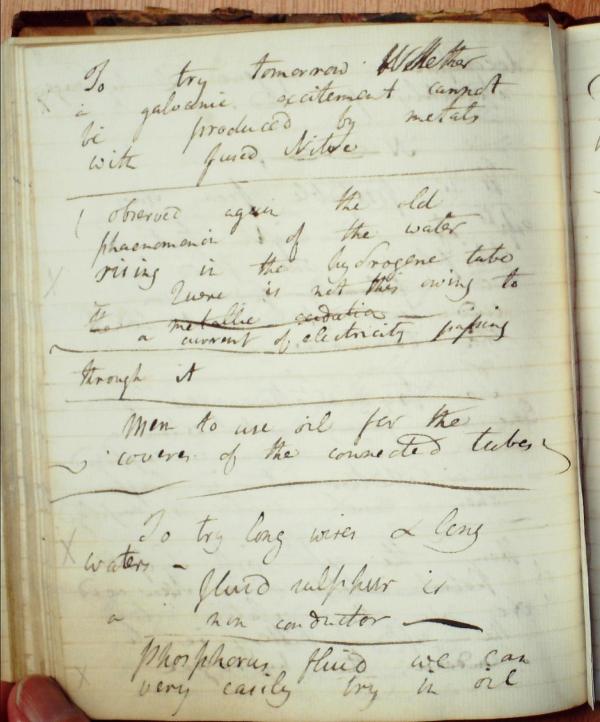 To try tomorrow Whether
a galvanic excitement cannot
be produced by metals
with fused Nitre
observed again the old
phaenomenon of the water
rising in the hydrogene tube
Quere is not this owing to
the metallic oxidation
a current of electricity passing
through it
Mem to use oil for the
covers of the connected tubes
To try long wires & long
waters -
fluid sulphur is
a non conductor —
phosphorus fluid we can
very easily try in oil